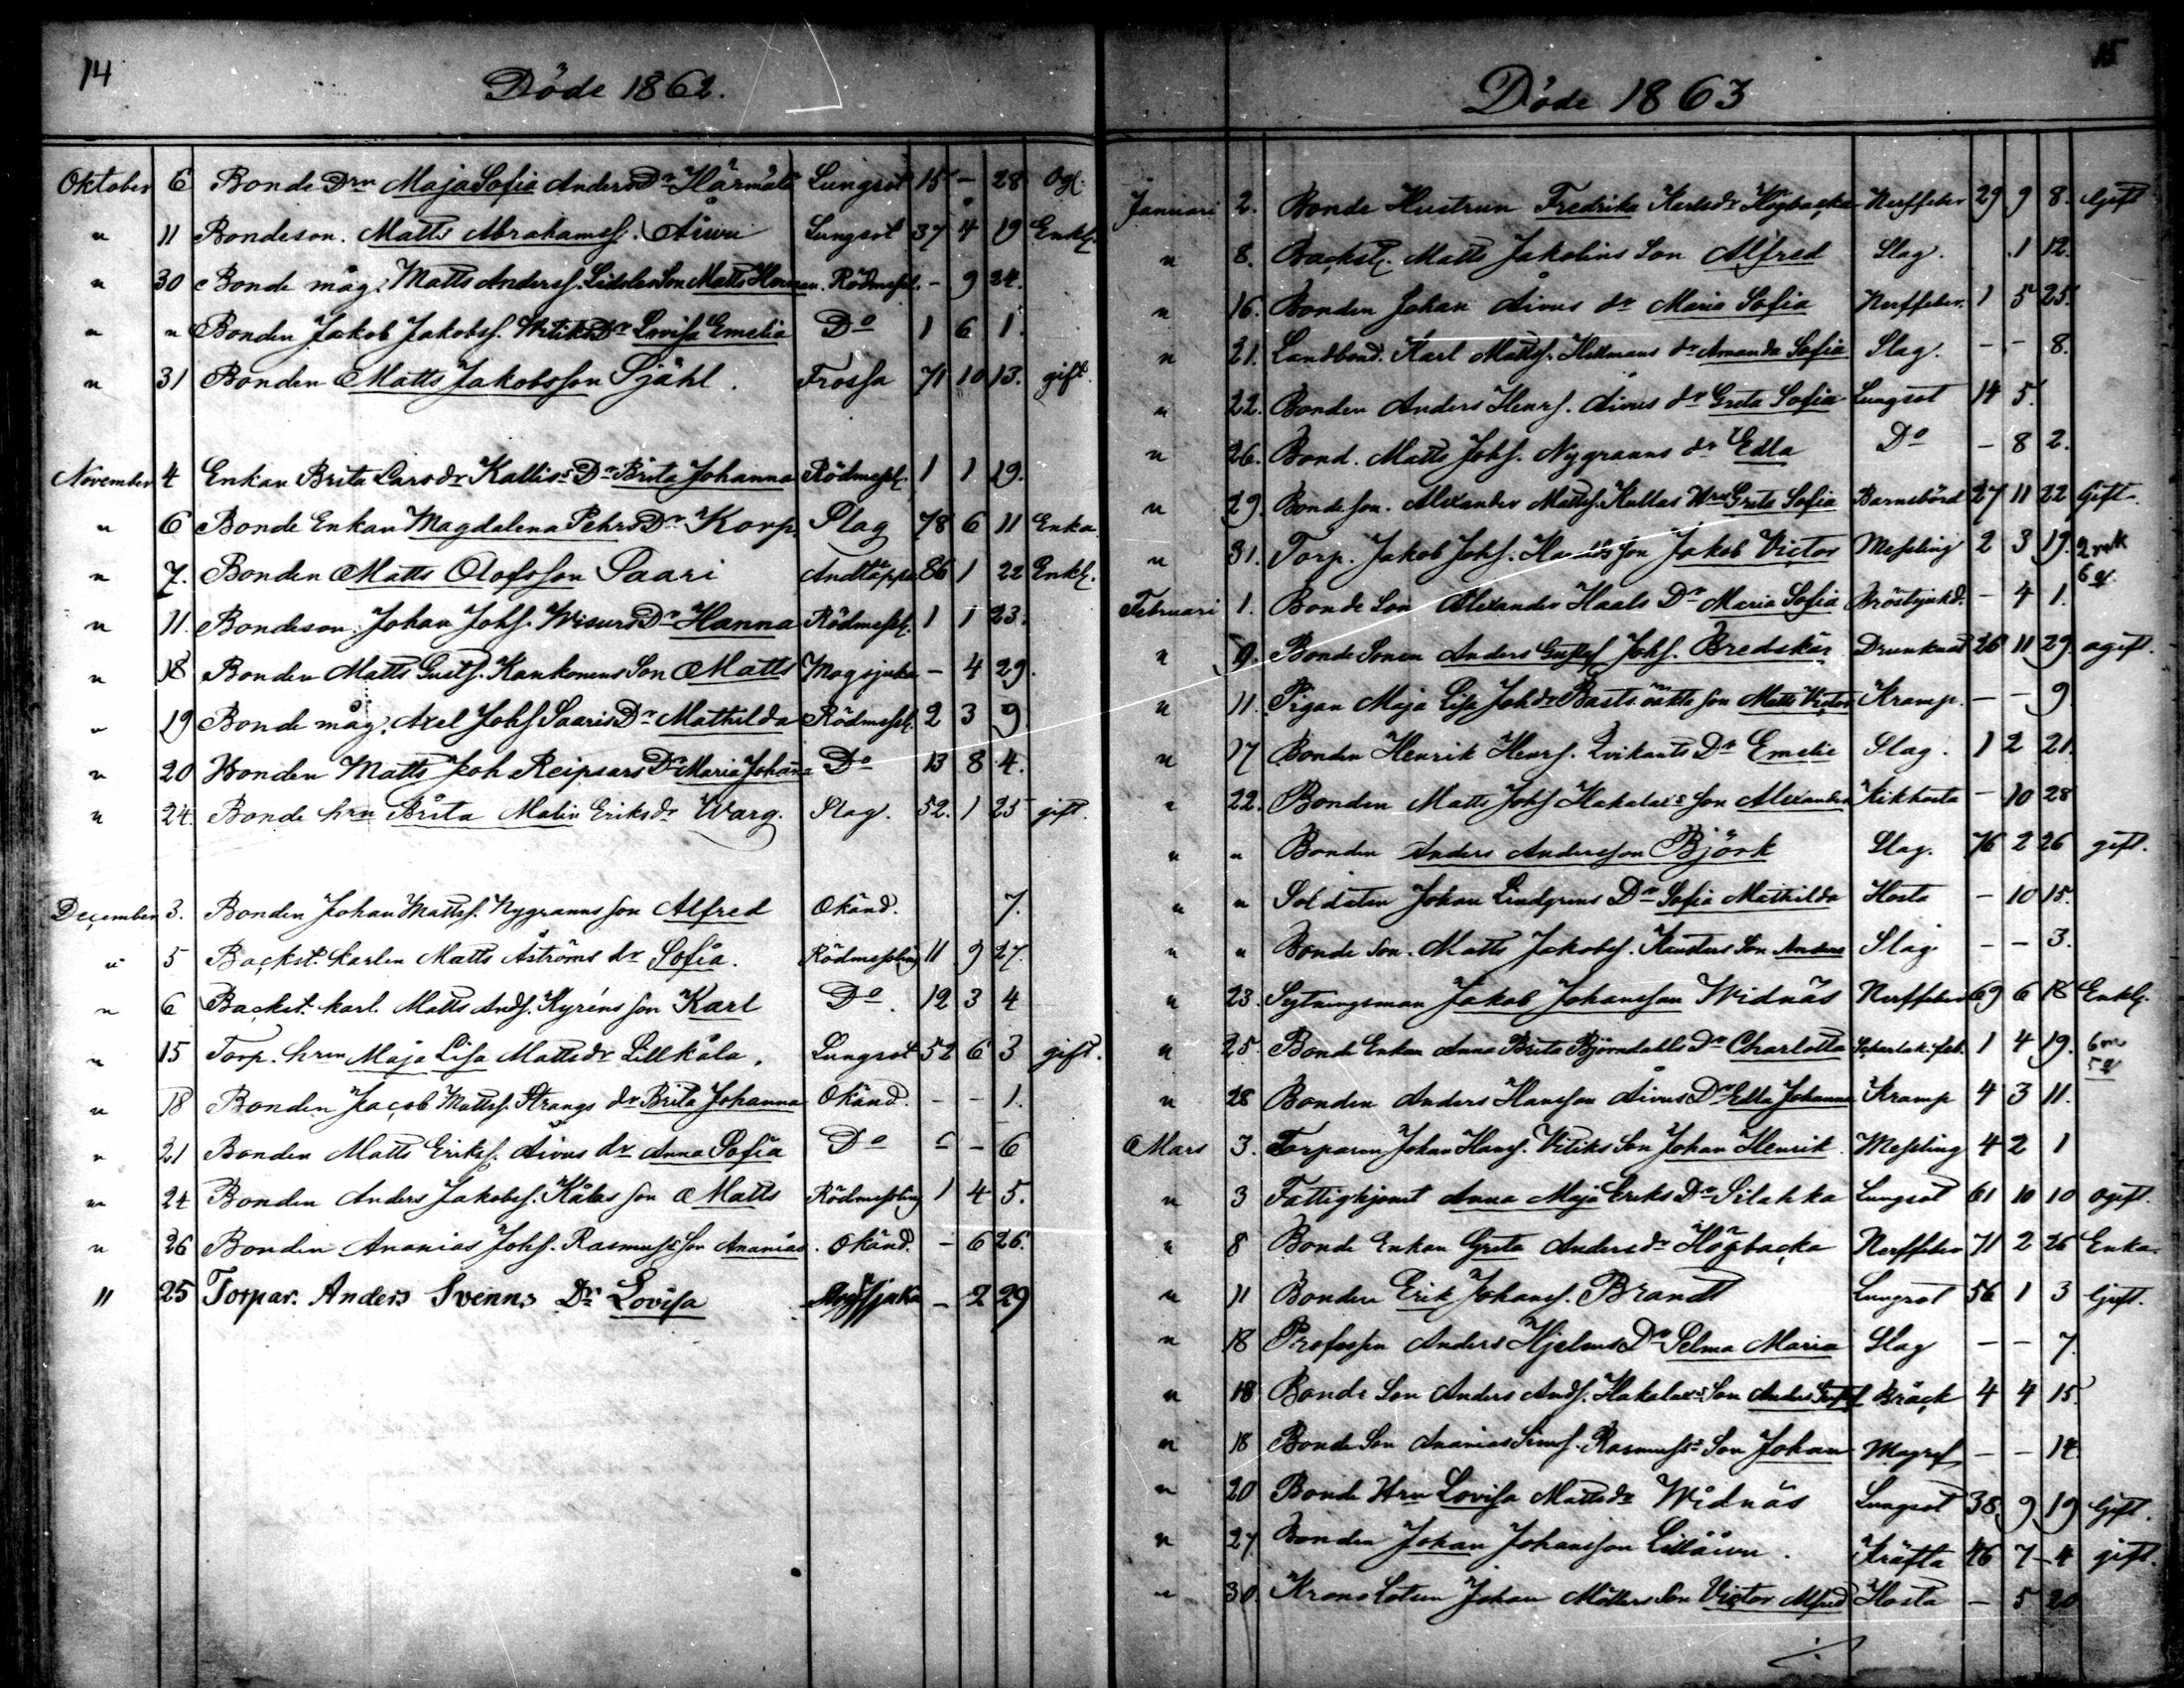 14
Döde 1862.
Oktober 6 Bonde Drn Maja Sofia Anders Dr Härmälä Lungsot 15 – 28 Og.
" 11 Bondeson. Matts Abrahamss. Åivu Lungsot 37 4 19 Enkl.
" 30 Bonde måg. Matts Anderss. Son Matts Herman. Rödmessl. – 9 24.
" " Bonden Jakob Jakobss. Witiks Dr Lovisa Emelia Do 1 6 1.
" 31 Bonden Matts Jakobsson Sjähl. Frossa 71 10 13. gift.
November 4 Enkan Brita Larsdr Kallis Dr Brita Johanna Rödmessl. 1 1 19.
" 6 Bonde Enkan Magdalena Pehrs Dr Korp. Slag 78 6 11 Enka.
" 7. Bonden Matts Olofsson Saari Andtäppa 86 1 22 Enkl.
" 11. Bondeson. Johan Johs. Wisurs Dr Hanna Rödmessl. 1 1 23.
" 18 Bonden Matts Gusts. Kankonens Son Matts Magsjuka – 4 29.
" 19 Bonde måg. Axel Johs Saaris Dr Mathilda Rödmessl. 2 3 9
" 20 Bonden Matts Joh Reipsars Dr Maria Johana Do 13 8 4.
" 24. Bonde hrn Brita Malin Eriksdr Warg. Slag. 52. 1 25 gift.
December 3. Bonden Johan Mattss. Nygranns son Alfred Okänd. 7.
" 5 Backst. karlen Matts Åströms dr Sofia. Rödmessling 11 9 27.
" 6 Backst. karl. Matts Ands. Kyréns son Karl Do. 12 3 4
" 15 Torp. hrun Maja Lisa Mattsdr Lillkåla. Lungsot 52 6 3 gift.
" 18 Bonden Jacob Mattss. Strangs dr Brita Johanna Okänd. – – 1.
" 21 Bonden Matts Erikss. Åivus dr Anna Sofia Do – – 6
" 24 Bonden Anders Jakobss. Kålas son Matts Rödmessling 1 4 5.
" 26 Bonden Ananias Johs. Rasmus's son Ananias. Okänd. – 6 26.
" 25 Torpar. Anders Svenns Dr Lovisa Magsjuka – 2 29
15
Döde 1863
Januari 2. Bonde Hustrun Fredrika Karlsdr Högbacka Nerffeber 29 9 8. Gift
" 8. Backst. Matts Jakolins Son Alfred Slag. 1 12.
" 16. Bonden Johan Åivus dr Maria Sofia Nerffeber. 1 5 25.
" 21. Landbond. Karl Mattss. Hellmans dr Amanda Sofia Slag. – – 8.
" 22. Bonden Anders Henrs. Åivus dr Greta Sofia Lungsot 14 5.
" 26. Bond. Matts Johs. Nygranns dr Edla Do – 8 2.
" 29. Bondeson. Alexander Mattss. Kallas Hru Greta Sofia Barnsbörd 27 11 22 Gift.
" 31. Torp. Jakob Johs. son Jakob Victor Messling 2 3 19. 2 mk
Februari 1. Bonde Son Alexander Haals Dr Maria Sofia Bröstsjukd. – 4 1.
" 9. Bonde Sonen Anders Gustaf Johs. Bredskär Drunknad 26 11 29. ogift.
" 11. Pigan Maja Lisa Johdr Basts oäkta son Matts Victor Kramp. – – 9
" 17 Bonden Henrik Henrs. Zvikants Dr Emelie Slag. 1 2 21.
" 22. Bonden Matts Johs Hakalax's son Alexander Kikhosta – 10 28
" " Bonden Anders Andersson Björk Slag. 76 2 26 gift.
" " Soldaten Johan Lindgrens Dr Sofia Mathilda Hosta – 10 15.
" " Bonde Son. Matts Jakobs. Kantus Son Anders Slag – – 3.
" 23. Sytningsman Jakob Johansson Widnäs Nerffeber 69 6 18 Enkl.
" 25. Bonde Enkan Anna Brita Björndalls Dr Charlotta Scharlak: feb. 1 4 19. 6 m
" 28 Bonden Anders Hansson Åivus Dr Edla Johanna Kramp 4 3 11.
Mars 3. Torparen Johan Hans. Vitiks Son Johan Henrik. Messling 4 2 1
" 3 Fattighjont Anna Maja Eriks Dr Silahka Lungsot 61 10 10 ogift.
" 8 Bonde Enkan Greta Andersdr Högbacka Nerffeber 71 2 26 Enka.
" 11 Bonden Erik Johans. Brandt Lungsot 56 1 3 Gift.
" 18 Professn Anders Hjelms Dr Selma Maria Slag – – 7.
" 18 Bonde Son Anders Ands. Hakalax's Son Anders Gustaf Bråck 4 4 15.
" 18 Bonde Son Ananias Sims. Rasmus's Son Johan Magref – – 14.
" 20 Bonde Hrn Lovisa Mattsdr Widnäs Lungsot 38 9 19 Gift.
" 27 Bonden Johan Johansson Lillåivu. Kräfta 46 7 4 gift.
" 30. Krono Lotsen Johan Möllers Son Victor Alfred Hosta – 5 20